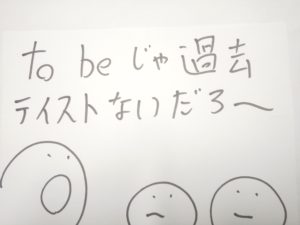 to beじゃ過去
テイストないだろ〜